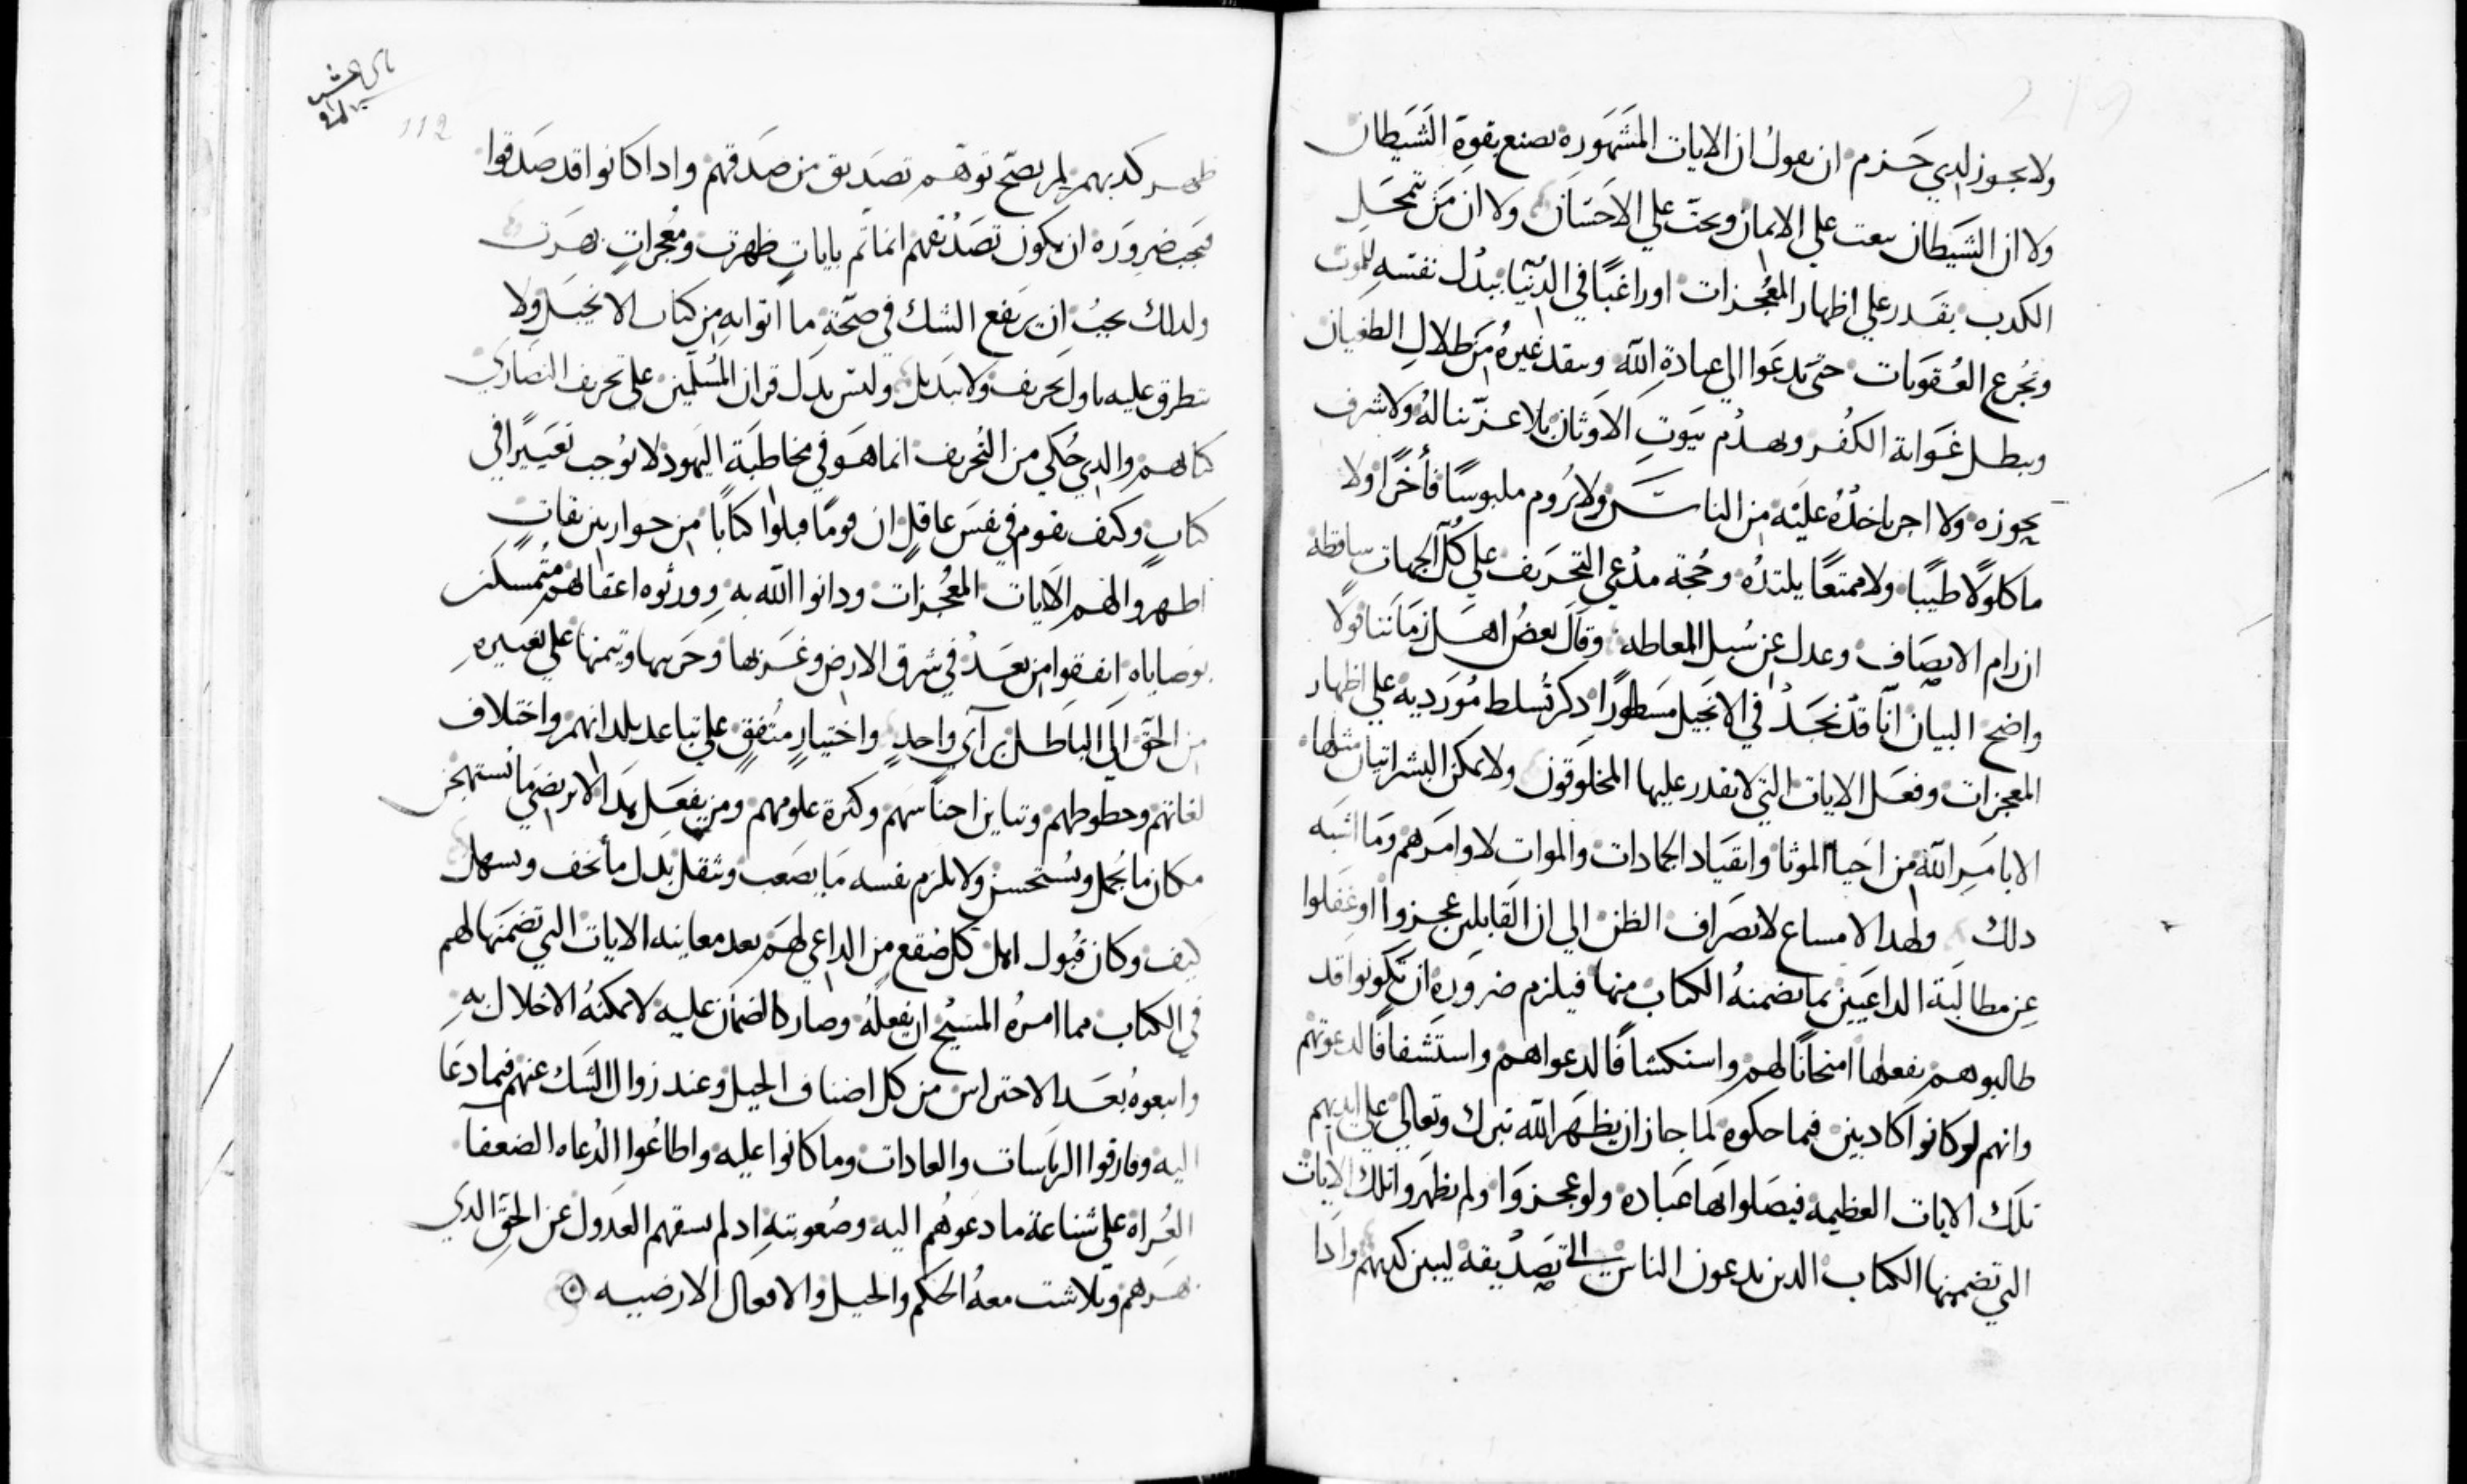 ولا يجوز لدي حزم ان يقول ان الايات المشهوره تصنع بقوة الشيطان
ولا ان الشيطان يبعت علي الايمان ويحت علي الاحسان ولا ان من تمحل
الكدب يقدر علي اظهار المعجزات او راغبًا في الدنيا يبدل نفسه للموت
وتجرع العقوبات حتي يدعوا الي عبادة الله وينقد غيره من ظلال الطغيان
ويبطل غواية الكفر ويهدم بيوت الاوثان بلا عز يناله ولا شرف
يحوزه ولا اجر ياخده عليه من الناس ولا يروم ملبوسًا فأخرًا ولا
ماكلوًلا طيبًا ولا ممتعًا يلتده وحجة مدعي التحريف علي كل الجهات ساقطه
ان رام الانصاف وعدل عن سبل المغالطه وقال بعض اهل زماننا قولًا
واضح البيان انا قد نجد في الانجيل مسطورًا دكر تسلط مورديه علي اظهار
المعجزات وفعل الايات التي لا يقدر عليها المخلوقون ولا يمكن البشر اتيان مثلها
الا بامر الله من احيا الموتا وانقياد الجمادات والموات لاوامرهم وما اشبه
دلك ولهدا لا مساع لانصراف الظن الي ان القابلين عجزوا او غفلوا
عن مطالبة الداعيين بما تضمنه الكتاب منها فيلزم ضروره ان تكونوا قد
طالبوهم بفعلها امتحانًا لهم واستكشافًا لدعواهم واستشفافًا لدعوتهم
وانهم لو كانوا كادبين فيما حكوه لما جاز ان يظهر الله تبرك وتعالي علي ايديهم
تلك الايات العظيمه فيضلوا بها عباده ولو عجزوا ولم يظهروا تلك الايات
التي تضمنها الكتاب الدين يدعون الناس الي تصديقه لبين كدبهم وادا
ظهر كدبهم لم يصح توهم تصديق من صدقهم وادا كانوا قد صدقوا
فيجب ضروره ان يكون تصديقهم انما تم بايات ظهرت ومعجزات بهرت
ولدلك يجب ان يرتفع الشك في صحة ما اتوا به من كتاب الانجيل ولا
يتطرق عليه تاول تحريف ولا تبديل وليس يدل قران المسلمين علي تحريف النصاري
كتابهم والدي حكي من التحريف انما هو في مخاطبة اليهود لا يوجب تغييرًا في
كتاب وكيف يقوم في نفس عاقل ان قومًا قبلوا كتابًا من حوارين ثقات
اظهروا لهم الايات المعجزات ودانوا الله به وورثوه اعقابهم متمسكين
بوصاياه اتفقوا من بعد في شرق الارض وغربها وحربيها وتيمنها علي تغييره
من الحق الي الباطل برآي واحد واختيار متفق علي تباعد بلدانهم واختلاف
لغاتهم وحظوظهم وتباين اجناسهم وكثرة علومهم ومن يفعل هدا لا يرضي ما يستهجن
مكان ما يجمل ويستحسن ولا يلزم نفسه ما يصعب ويثقل بدل ما يخف ويسهل
كيف وكان قبول اهل كل صقع من الداعي لهم بعد معاينه الايات التي تضمنها لهم
في الكتاب مما امره المسيح ان يفعله وصار كالضمان عليه لا يمكنه الاخلال به
واتبعوه بعد الاحتراس من كل اصناف الحيل وعند زوال الشك عنهم فيما دعا
اليه وفارقوا الرياسات والعادات وما كانوا عليه واطاعوا الدعاه الضعفا
العراه علي شناعة ما دعوهم اليه وصعوبته اد لم يسعهم العدول عن الحق الدي
بهرهم وتلاشت معه الحكم والحيل والافعال الارضيه
112
219